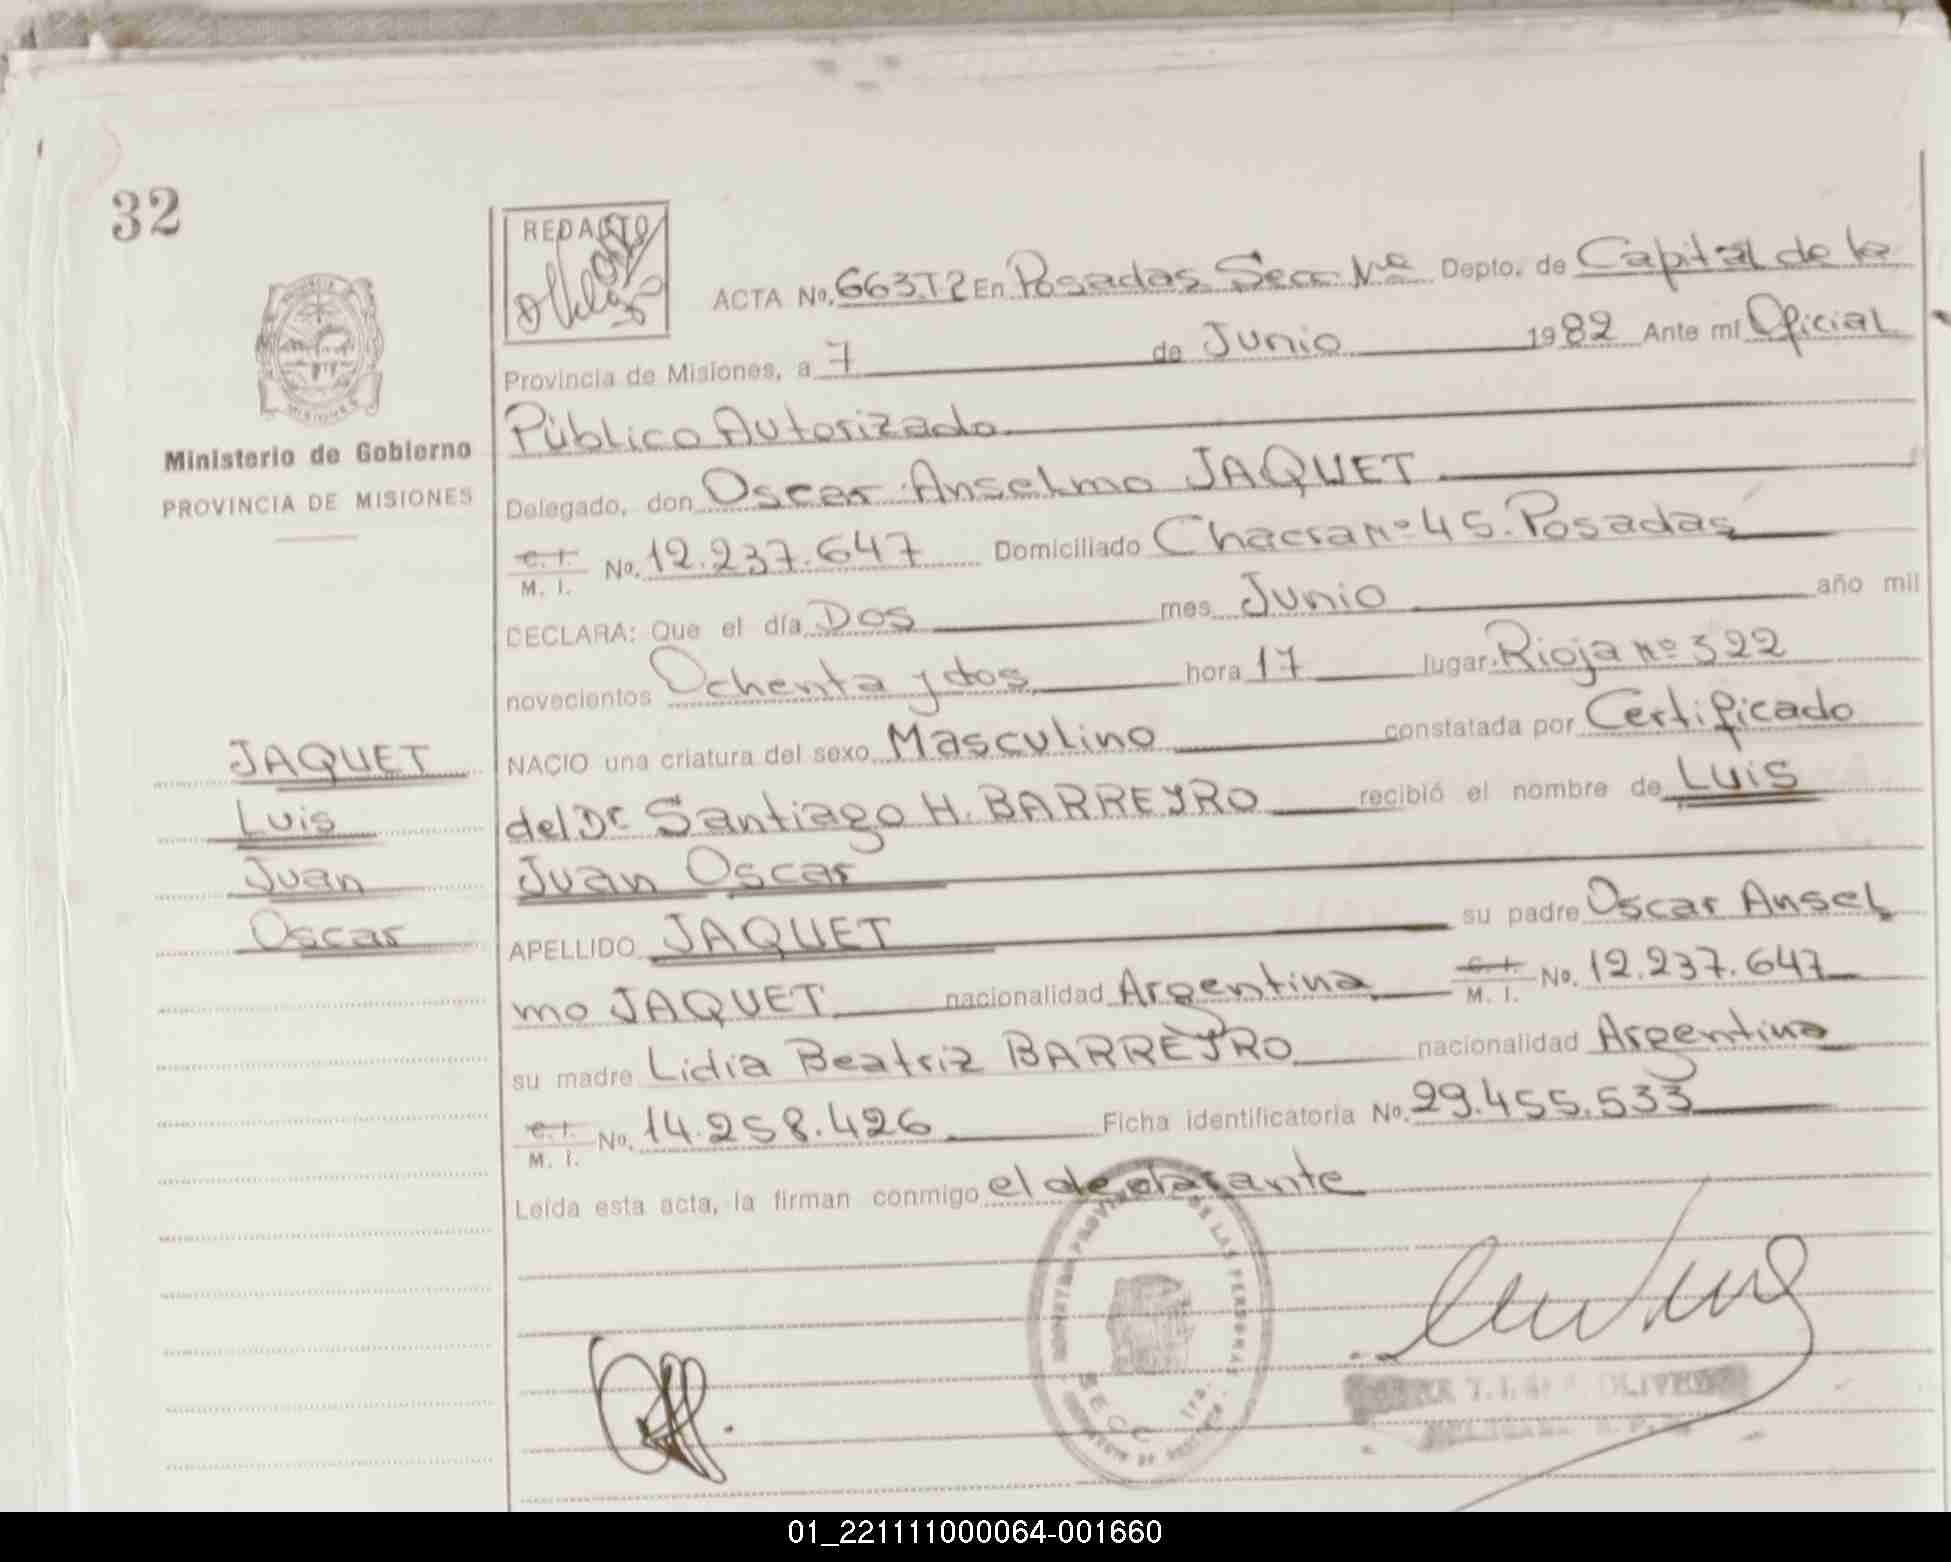 32
REDACTO
ACTA No. 663T2 En Posadas Secc Nª Depto. de Capital de la
Provincia de Misiones, a 7 de Junio 1982 Ante mí Oficial
Público Autorizado
Ministerio de Gobierno
PROVINCIA DE MISIONES
Delegado, don Oscar Anselmo JAQUET
C. I. M. I. No. 12.237.647 Domiciliado Chacra Nº 45. Posadas
DECLARA: Que el día Dos mes Junio año mil
novecientos Ochenta y dos hora 17 lugar Rioja Nº 322
NACIO una criatura del sexo Masculino constatada por Certificado
del Dr Santiago H. BARREYRO recibió el nombre de Luis
Juan Oscar
APELLIDO JAQUET su padre Oscar Ansel
mo JAQUET nacionalidad Argentina C. I. M. I. No. 12.237.647
su madre Lidia Beatriz BARREYRO nacionalidad Argentina
C. I. M. I. No. 14.258.426 Ficha identificatoria No. 29.455.533
Leída esta acta, la firman conmigo el declarante
JAQUET
Luis
Juan
Oscar
DE LAS PERSONAS
SECC. 1ra.
01_221111000064-001660